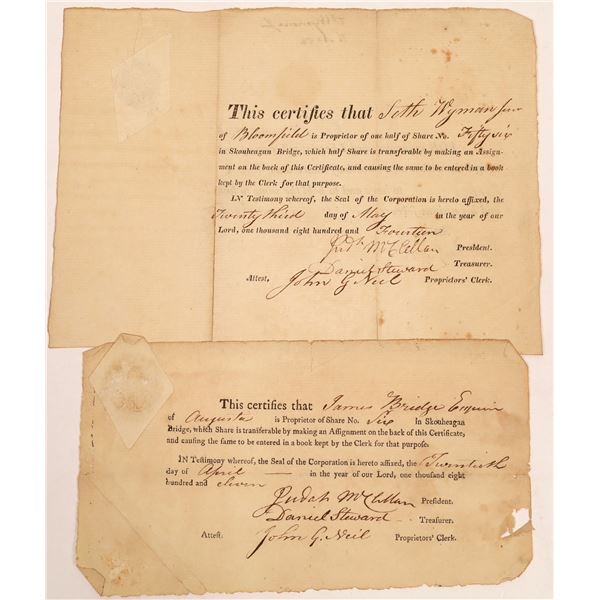 This certifies that Seth Wyman junr
of Bloomfield is Proprietor of one half of Share No. Fifty six
in Skouheagan Bridge, which half Share is transferable by making an Assign-
ment on the back of this Certificate, and causing the same to be entered in a book
kept by the Clerk for that purpose.
IN Testimony whereof, the Seal of the Corporation is hereto affixed, the
Twenty third day of May in the year of our
Lord, one thousand eight hundred and Fourteen
Judh McClellan President.
Daniel Steward Treasurer.
Attest, John G Neil Proprietors' Clerk.
This certifies that James Bridge Esquire
of Augusta is Proprietor of Share No. Six In Skouheagan
Bridge, which Share is transferable by making an Assignment on the back of this Certificate,
and causing the same to be entered in a book kept by the Clerk for that purpose.
IN Testimony whereof, the Seal of the Corporation is hereto affixed, the Twentieth
day of April — in the year of our Lord, one thousand eight
hundred and eleven
Judah McClellan President.
Daniel Steward — Treasurer.
Attest: John G. Neil Proprietors' Clerk.